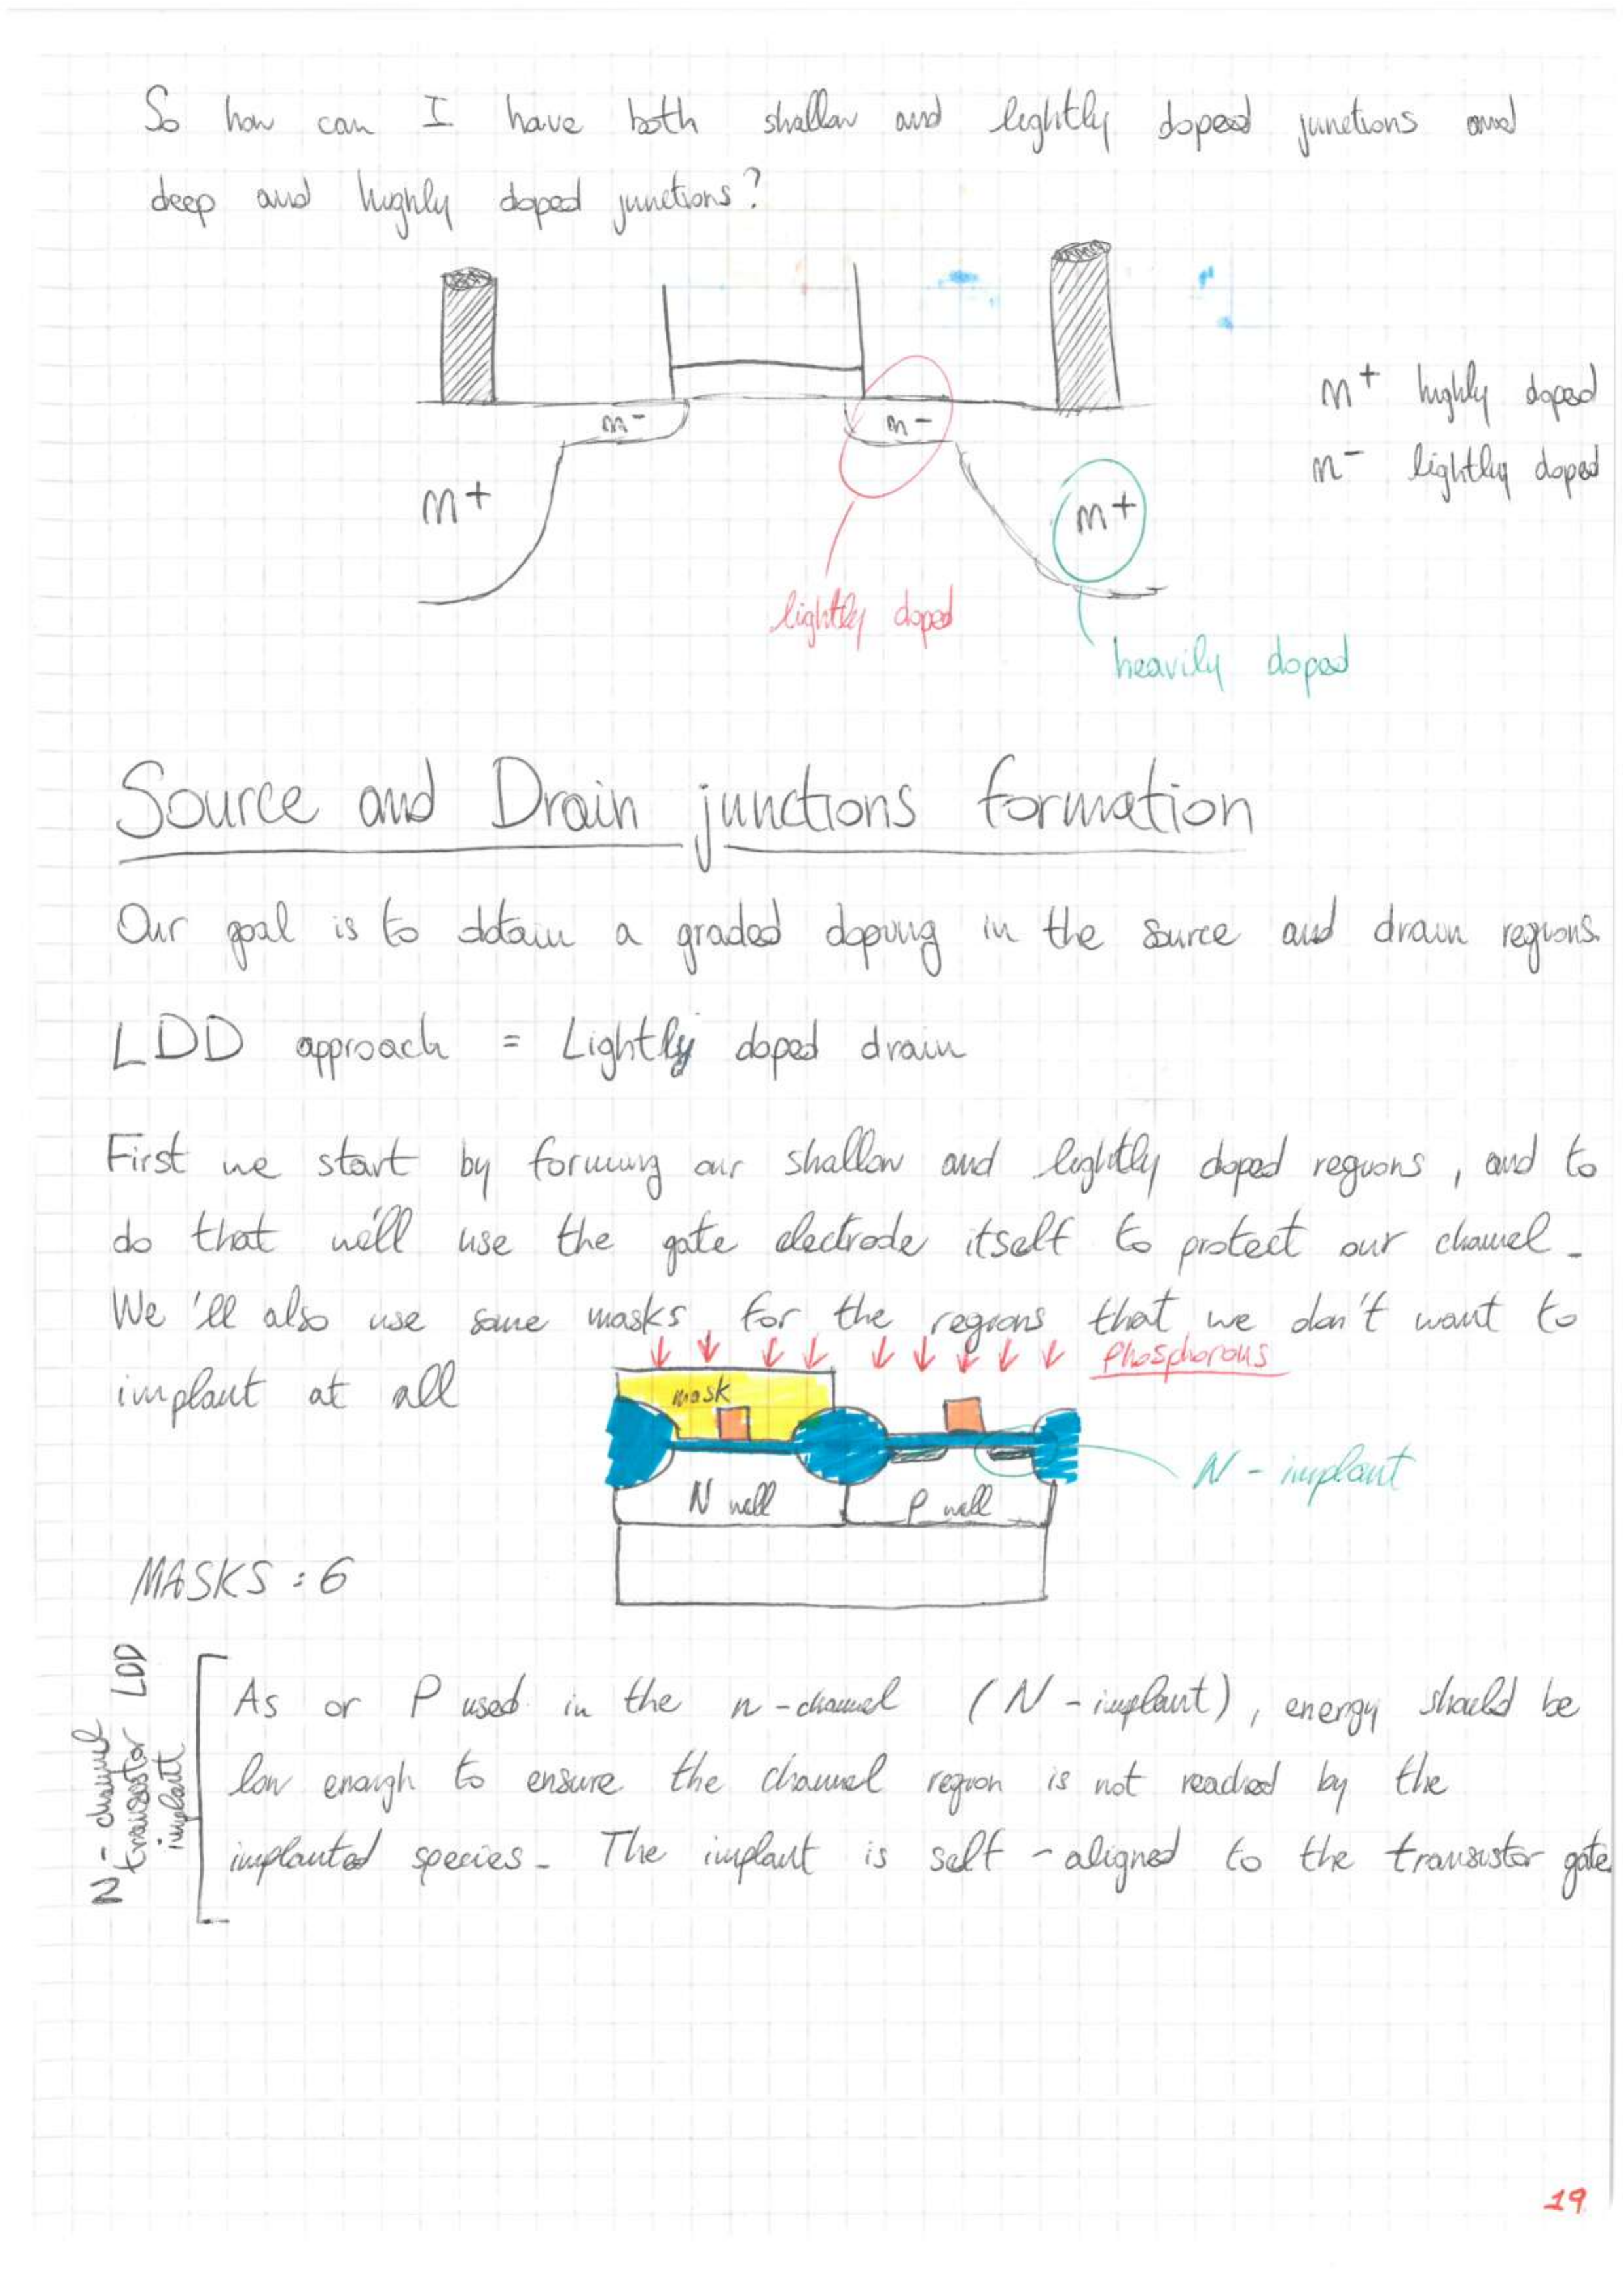 So how can I have both shallow and lightly doped junctions and
deep and highly doped junctions?
n⁺ highly doped
n⁻ n⁻
n⁻ lightly doped
n+ n+
lightly doped
heavily doped
Source and Drain junctions formation
Our goal is to obtain a graded doping in the source and drain regions.
LDD approach = Lightly doped drain
First we start by forming our shallow and lightly doped regions, and to
do that we'll use the gate electrode itself to protect our channel.
We'll also use some masks for the regions that we don't want to
Phosphorous
implant at all
mask
N - implant
N well P well
MASKS : 6
N - channel transistor LDD implant
As or P used in the n-channel (N - implant), energy should be
low enough to ensure the channel region is not reached by the
implanted species. The implant is self-aligned to the transistor gate.
19